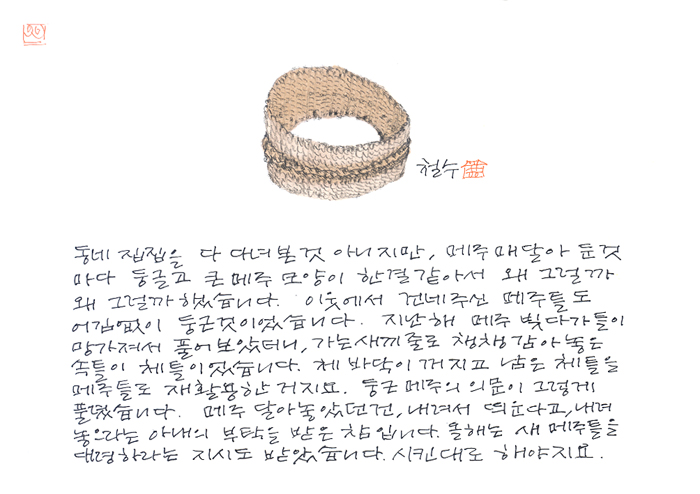 철수
동네 집집을 다 다녀본것 아니지만, 메주 매달아 둔것
마다 둥글고 큰 메주 모양이 한결같아서 왜 그럴까
왜 그럴까 했습니다. 이웃에서 건네주신 메주틀도
어김없이 둥근것이었습니다. 지난해 메주 빚다가 틀이
망가져서 풀어보았더니, 가는 새끼줄로 챙챙 감아놓은
속틀이 체틀이었습니다. 체 바닥이 꺼지고 남은 체틀을
메주틀로 재활용한 거지요. 둥근 메주의 의문이 그렇게
풀렸습니다. 메주 달아놓았던건, 내려서 띄운다고, 내려
놓으라는 아내의 부탁을 받은 참입니다. 올해는 새 메주틀을
대령하라는 지시도 받았습니다. 시킨대로 해야지요.